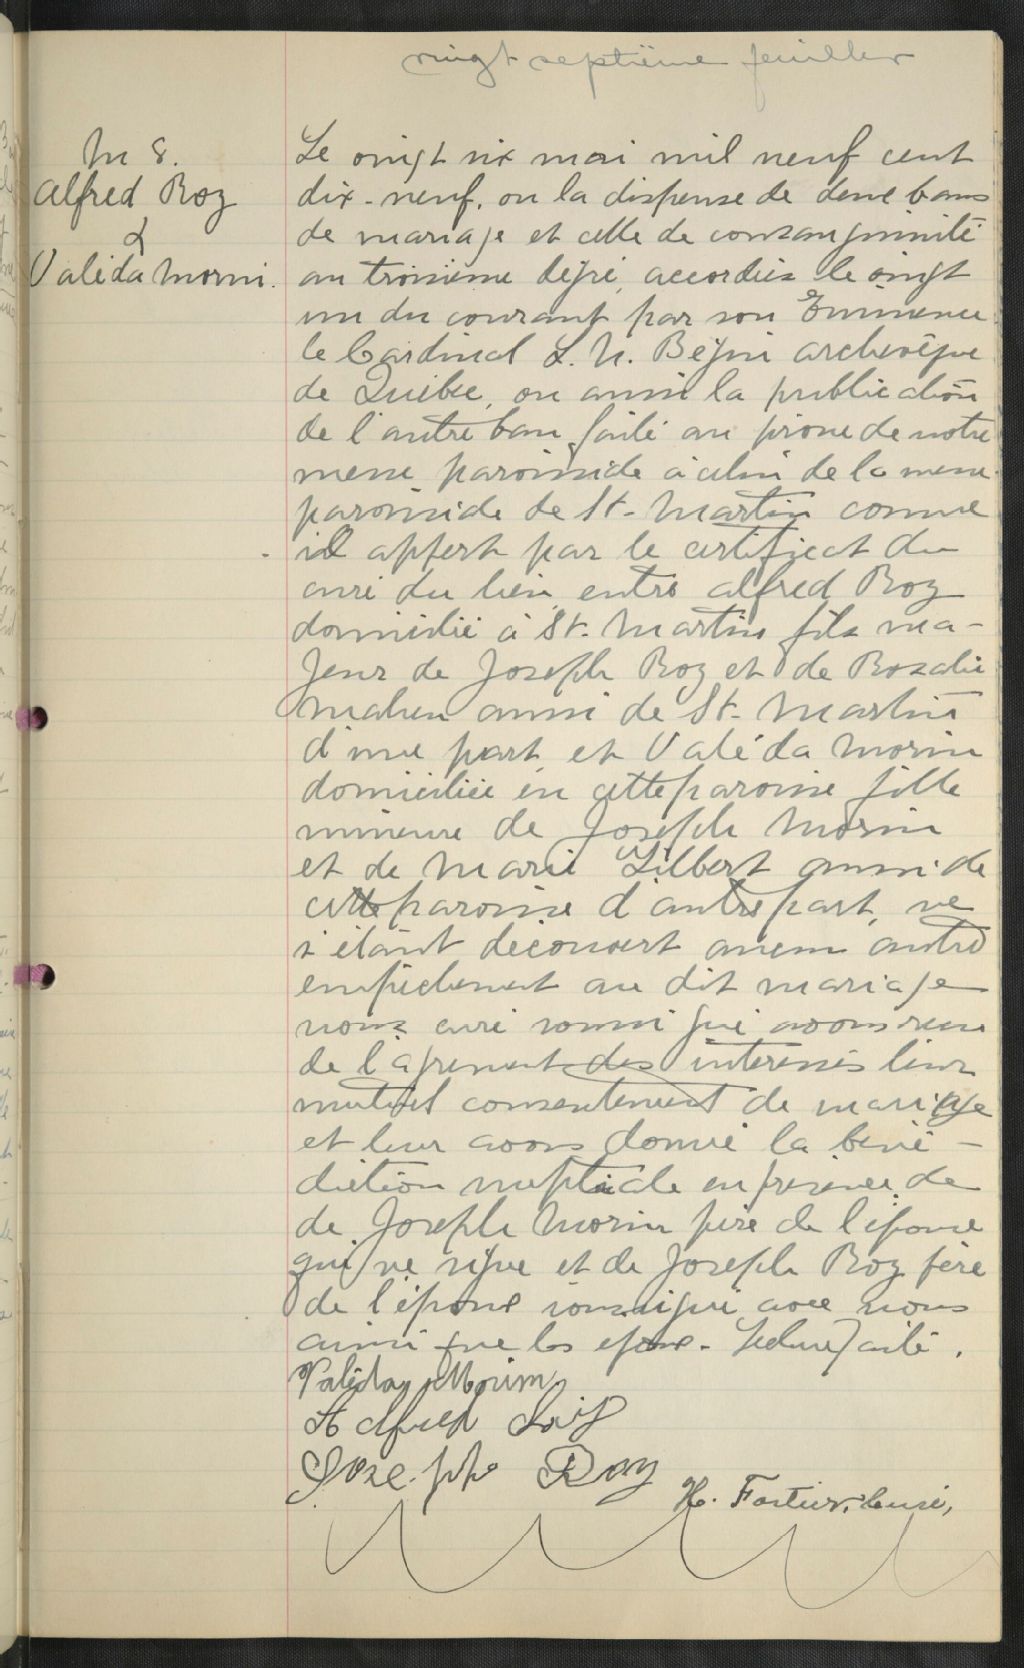 vingt septième feuillet
M 8.
Alfred Roy
&
Valéda Morin.
Le vingt six mai mil neuf cent
dix-neuf, vu la dispense de deux bans
de mariage et celle de consanguinité
au troisième degré, accordées le vingt
un du courant par son Eminence
le Cardinal L. N. Bégin archevêque
de Québec, vu aussi la publication
de l'autre ban faite au prône de notre
messe paroissiale à celui de la messe
paroissiale de St-Martin comme
il appert par le certificat du
curé du lieu, entre Alfred Roy
domicilié à St-Martin fils ma-
jeur de Joseph Roy et de Rosalie
Maheu aussi de St-Martin
d'une part, et Valéda Morin
domiciliée en cette paroisse fille
mineure de Joseph Morin
et de Marie Gilbert aussi de
cette paroisse d'autre part, ne
s'étant découvert aucun autre
empêchement au dit mariage
nous curé soussigné avons reçu
de l'agrement des interessés leur
mutuel consentement de mariage
et leur avons donné la béné-
diction nuptiale en présence de
de Joseph Morin père de l'épouse
qui ne signe et de Joseph Roy père
de l'époux soussigné avec nous
ainsi que les epoux. Lecture faite.
Valéda Morin
Alfred Roy
Joseph Roy
H. Fortier, curé,